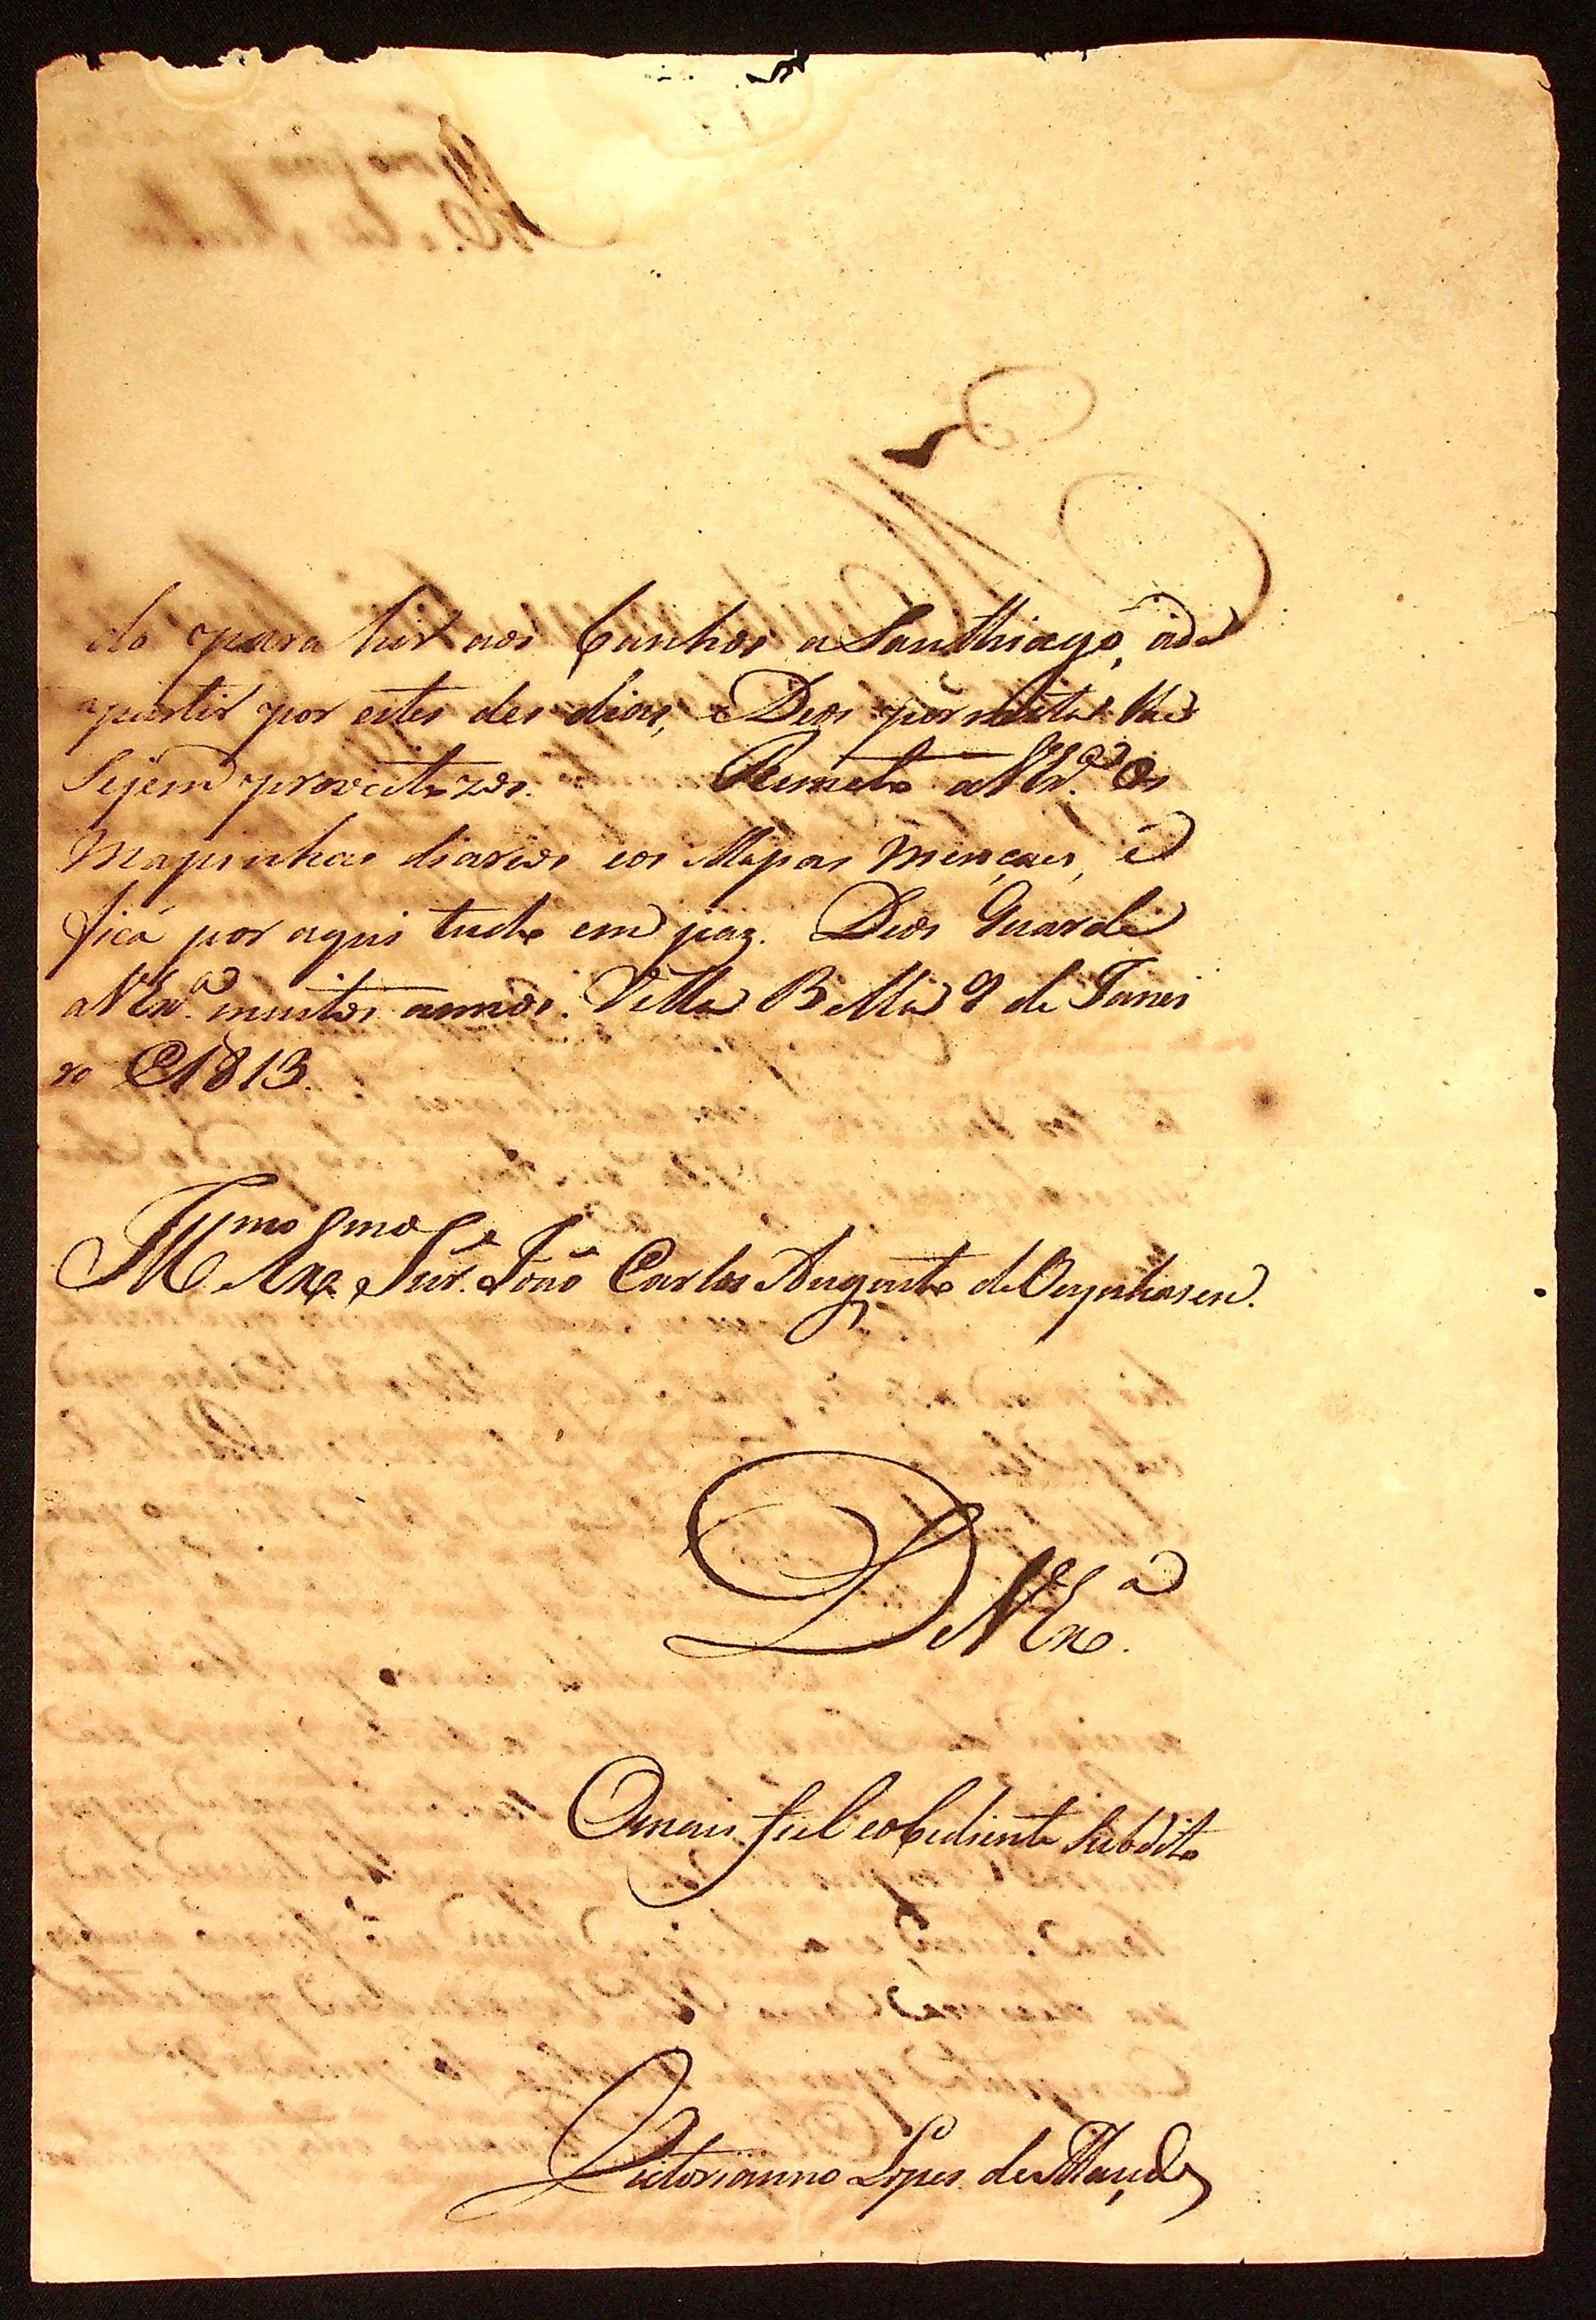 do para hir aos banhos a Santhiago, ade
partir por estes des dias, e Deos permita lhe
Sejem proveitozos. Remeto a VEx.ª Os
Mapinhas diarios eos Mapas Mençaes, e
fica por aqui tudo em paz. Deos Guarde
a VEx.ª muitos annos. Villa Bella 9 de Janei
ro de 1813.
Ill.mo e Ex.mo Snr. João Carlos Augusto de Oeynhasen.
De VEx.ª
Omais fiel eobediente Subdito
Victorianno Lopes de Maçedo